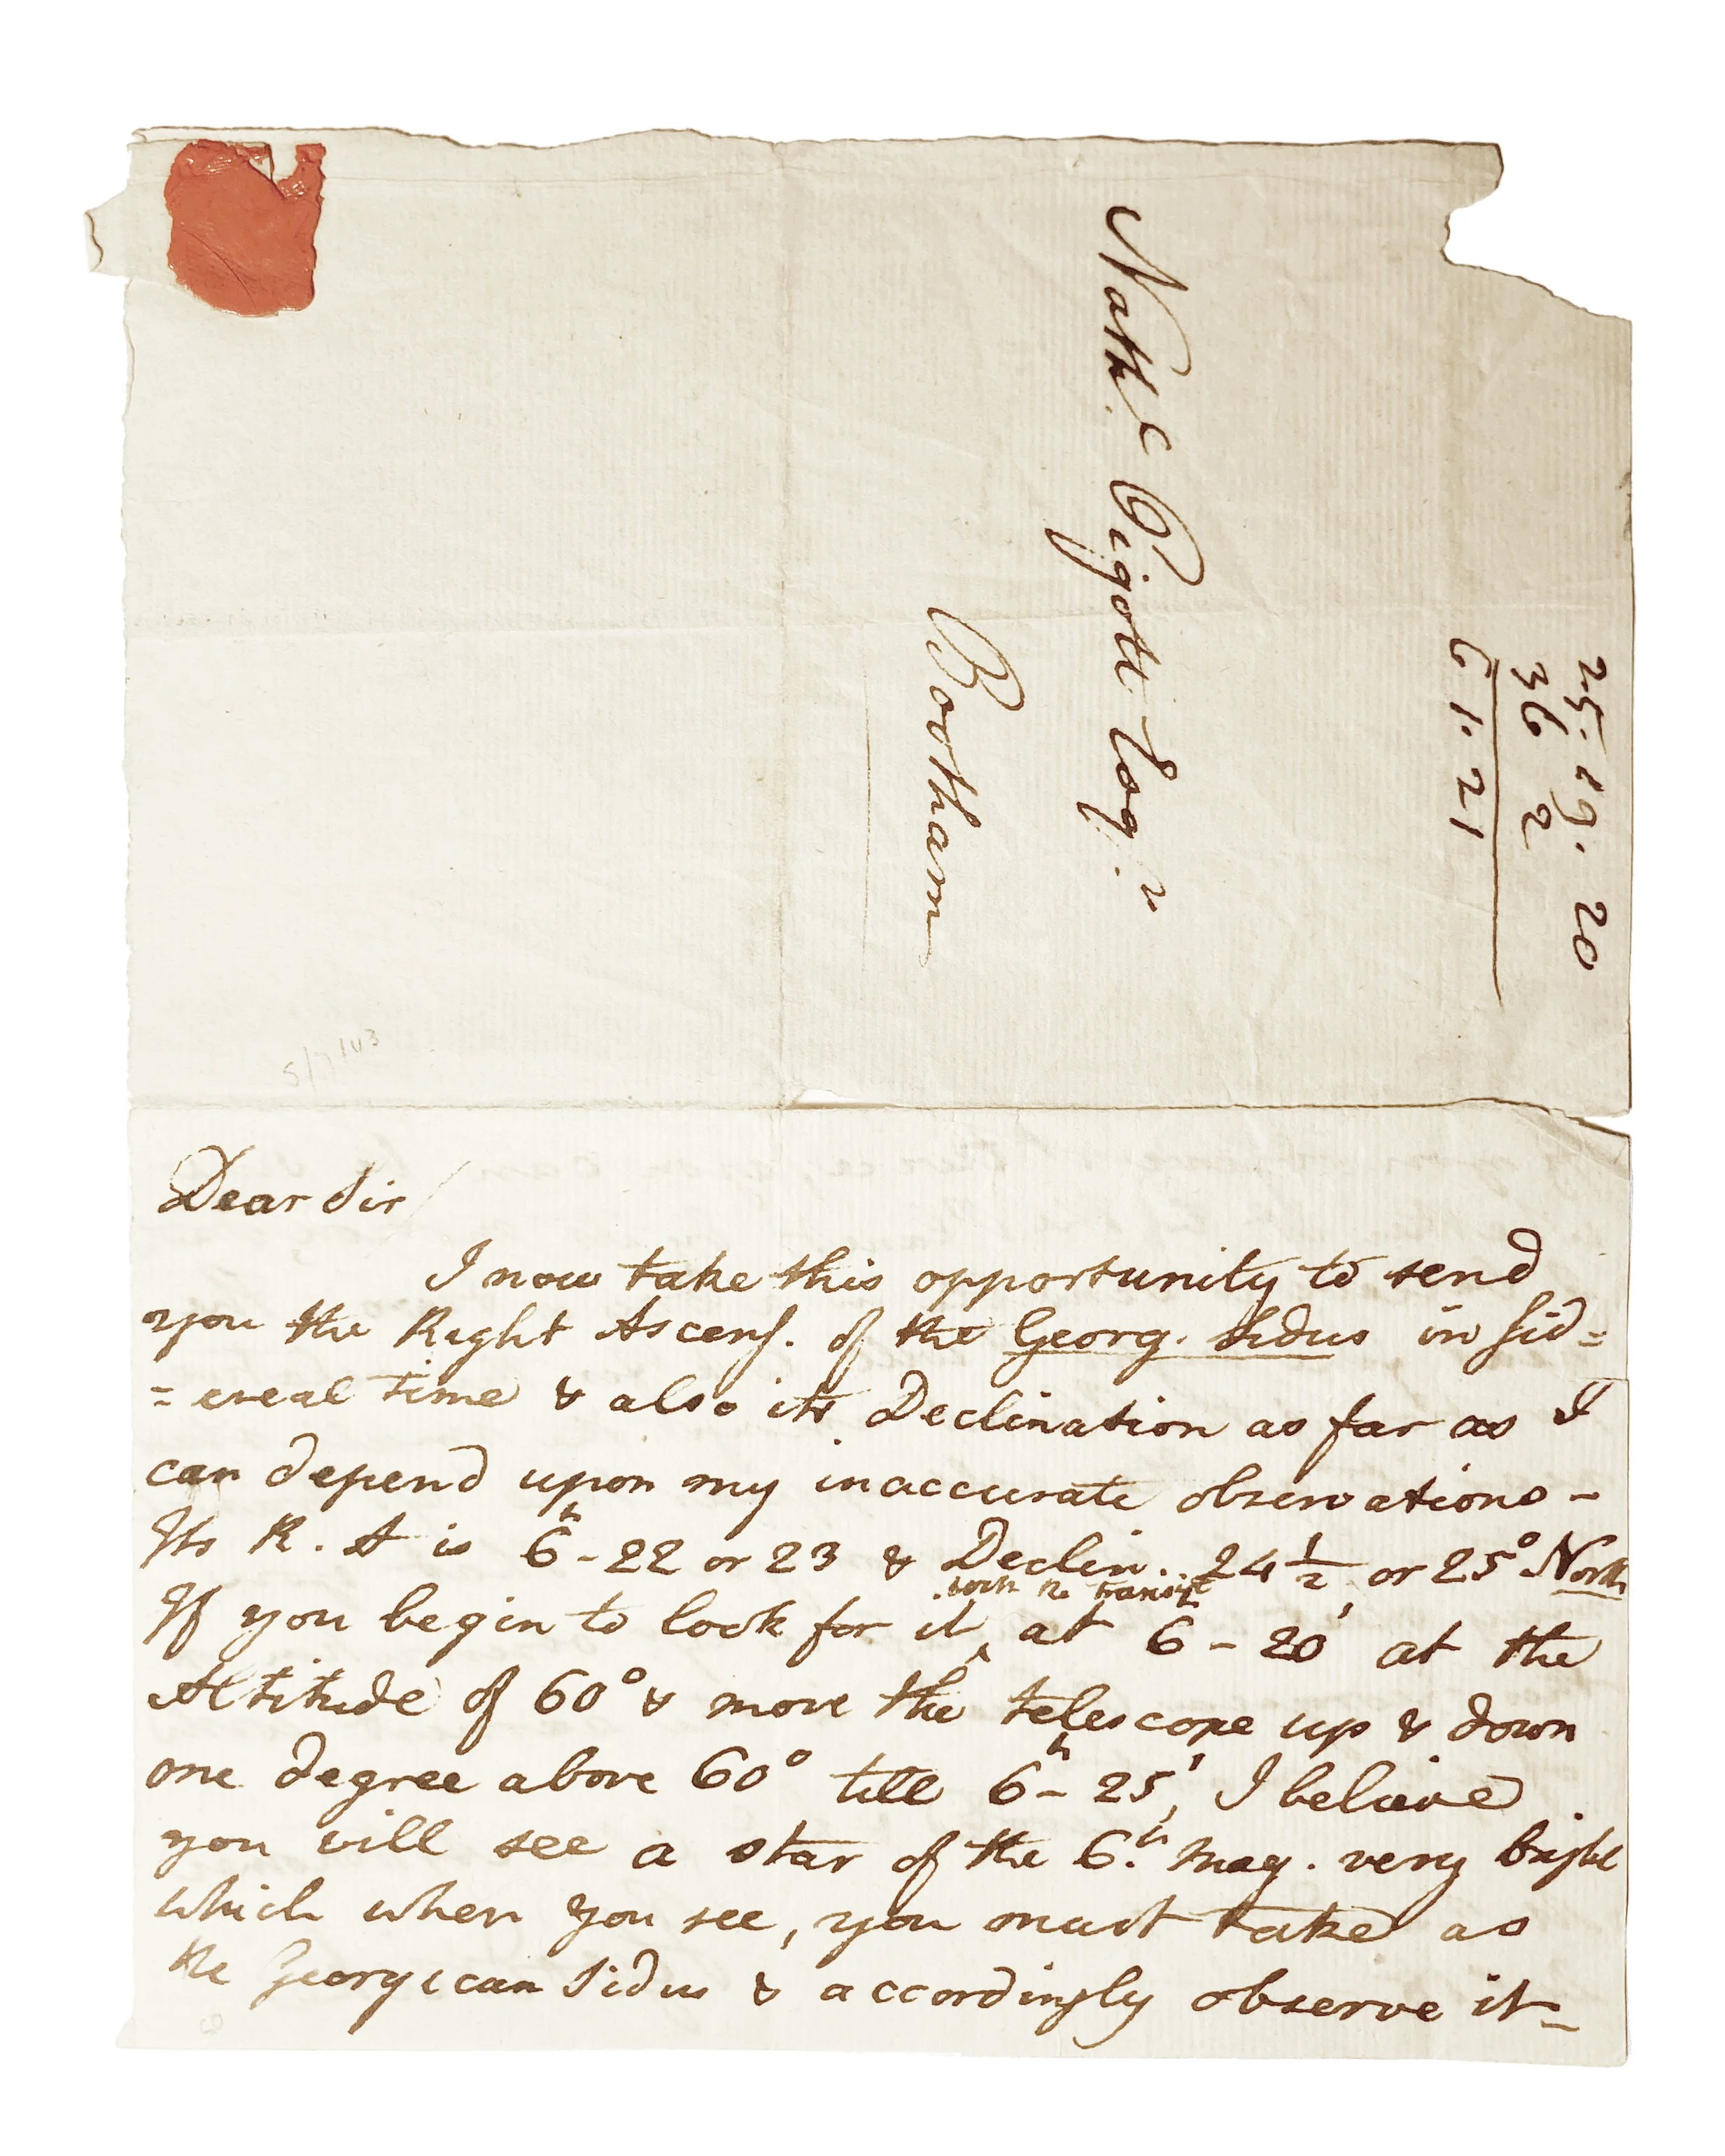 25. 19. 20
36 2
61. 21
Nath.l Pigott Esq.r
Bootham
Dear Sir/
I now take this opportunity to send
you the Right Ascens. of the Georg. Sidus in Sid=
=ereal time & also its Declination as far as I
can depend upon my inaccurate observations -
Its R. A is 6h - 22 or 23 & Declin.. 24 1/2 or 25° North
with the transit
If you begin to look for it ‸ at 6 - 20' at the
Altitude of 60° & move the telescope up & down
one degree above 60° till 6h - 25', I believe
you will see a star of the 6.th Mag. very bright
which when you see, you must take as
the Georgican Sidus & accordingly observe it -